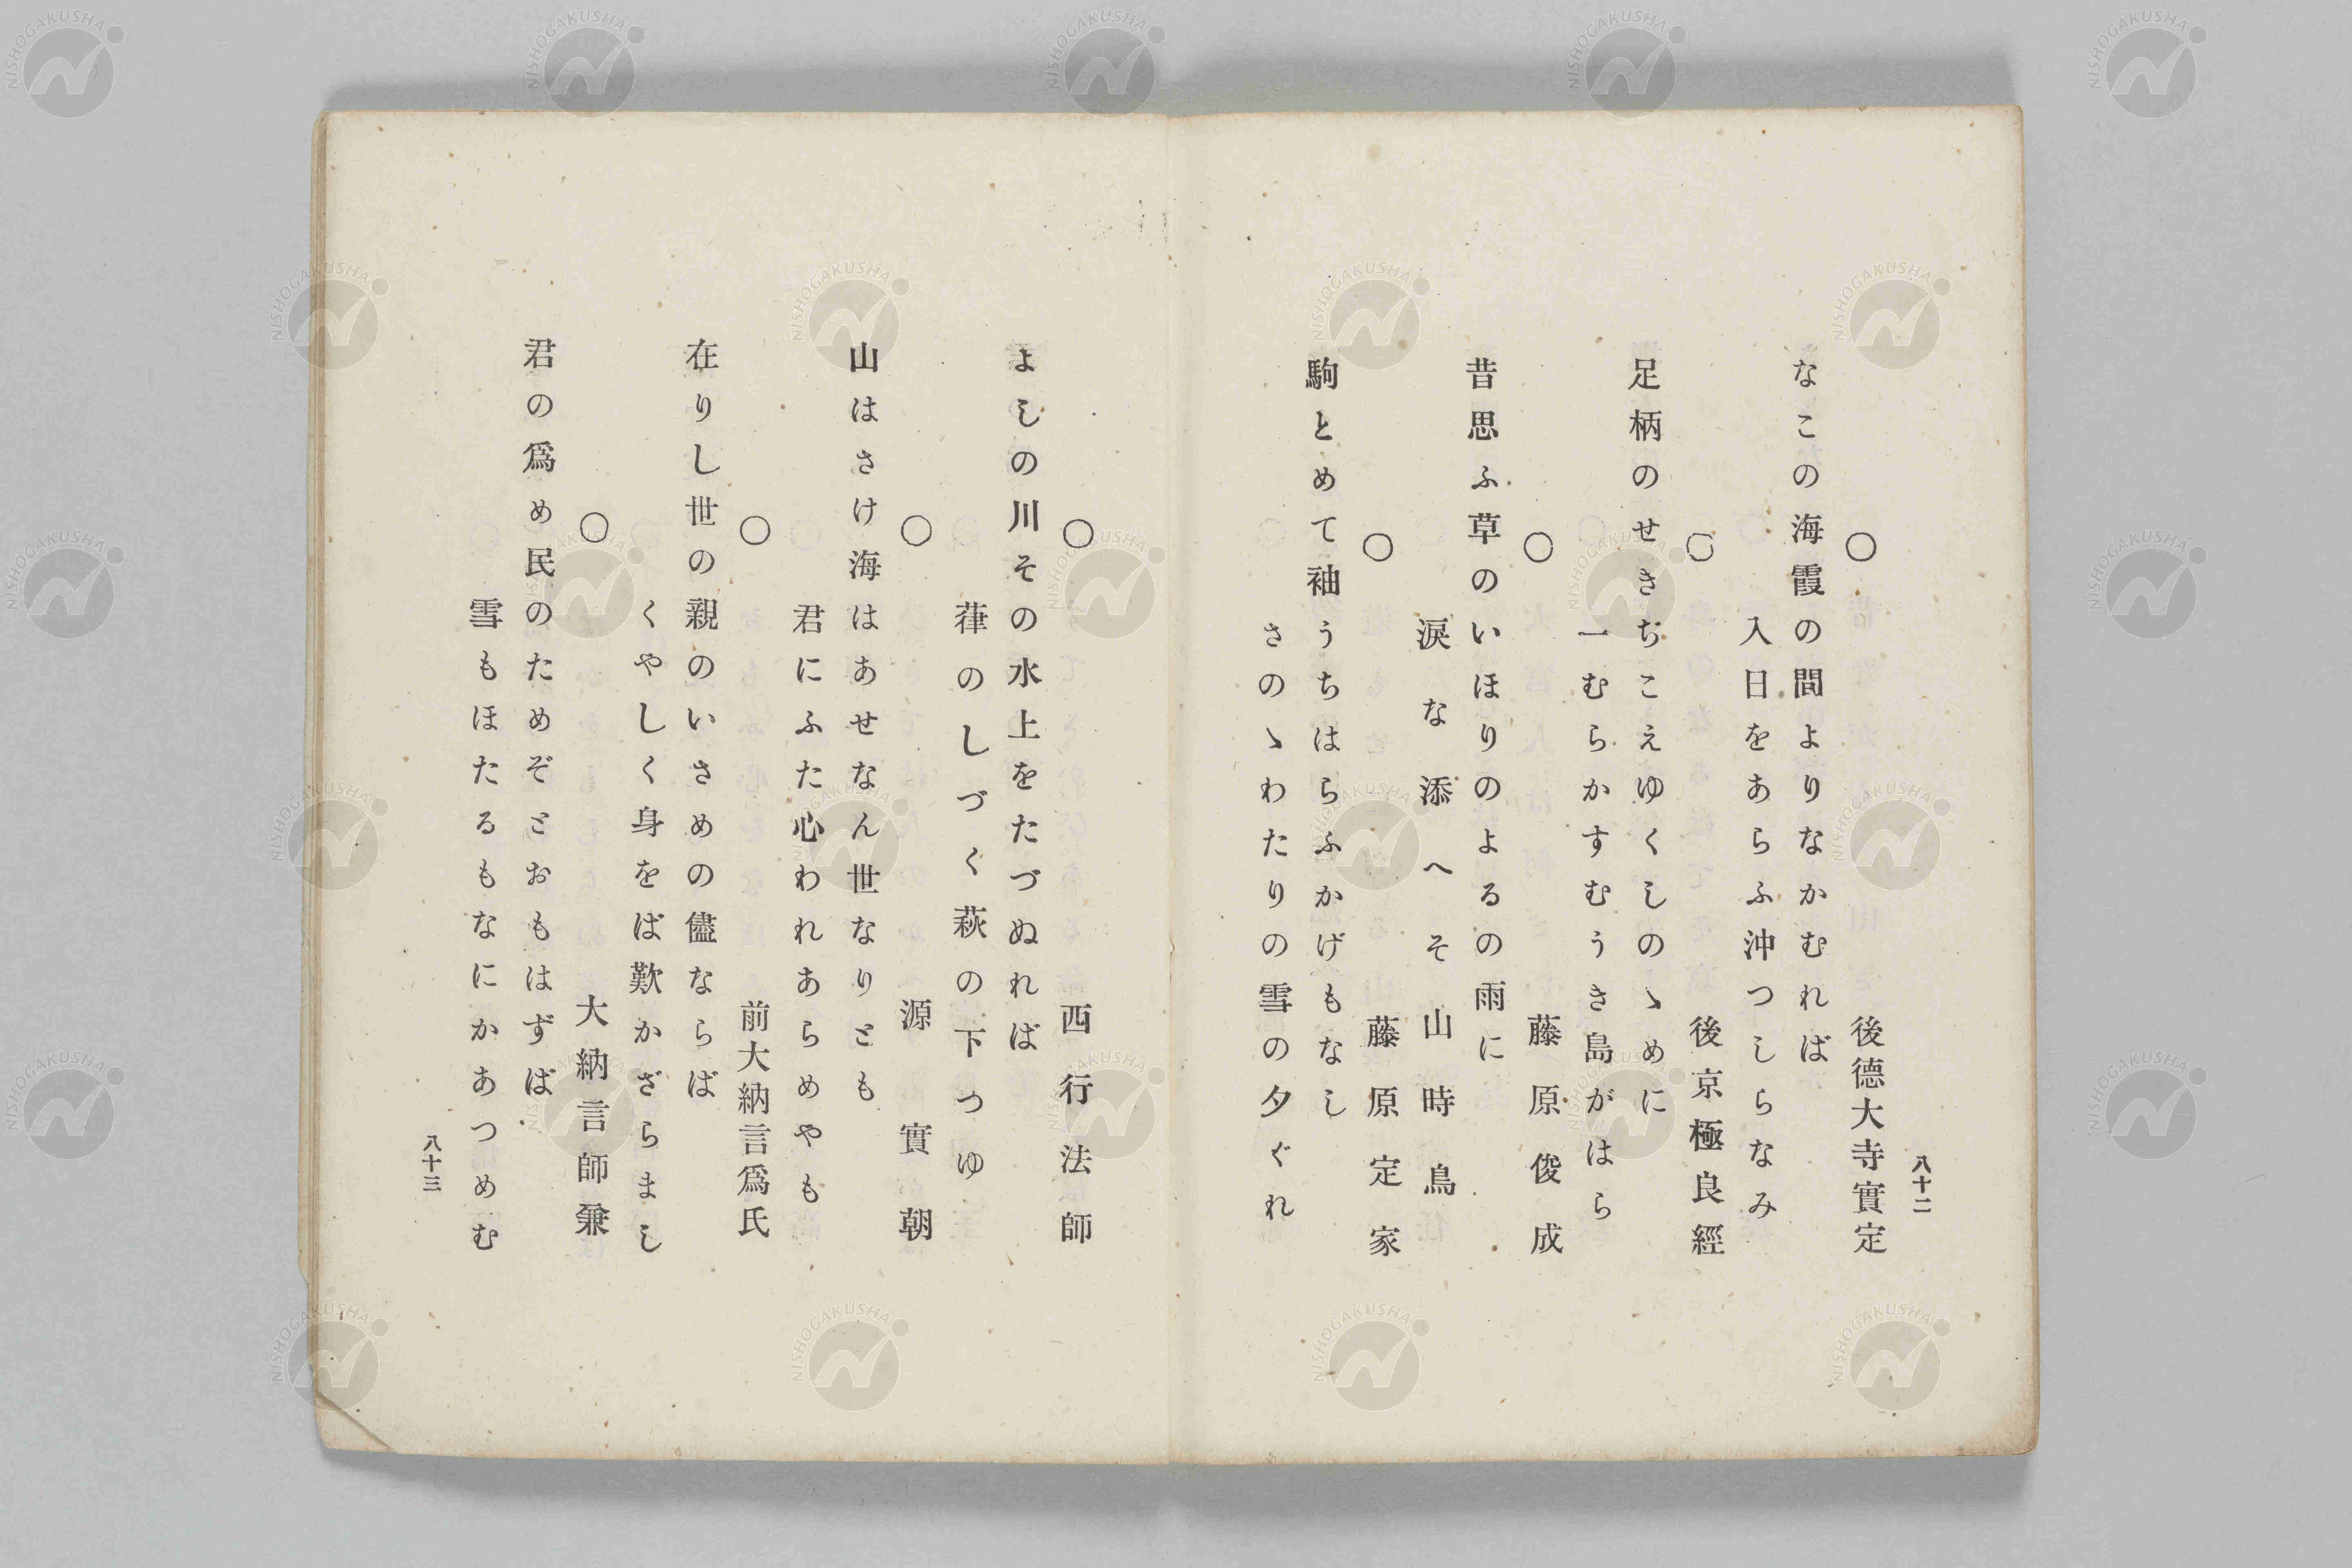 八十二
○ 後德大寺實定
なこの海霞の間よりなかむれば
入日をあらふ沖つしらなみ
○ 後京極良經
足柄のせきぢこえゆくしのゝめに
一むらかすむうき島がはら
○ 藤原俊成
昔思ふ草のいほりのよるの雨に
淚な添へそ山時鳥
○ 藤原定家
駒とめて袖うちはらふかげもなし
さのゝわたりの雪の夕ぐれ
○ 西行法師
よしの川その水上をたづぬれば
葎のしづく萩の下つゆ
○ 源實朝
山はさけ海はあせなん世なりとも
君にふた心われあらめやも
○ 前大納言爲氏
在りし世の親のいさめの儘ならば
くやしく身をば歎かざらまし
○ 大納言師兼
君の爲め民のためぞとおもはずば
雪もほたるもなにかあつめむ
八十三
NISHOGAKUSHA